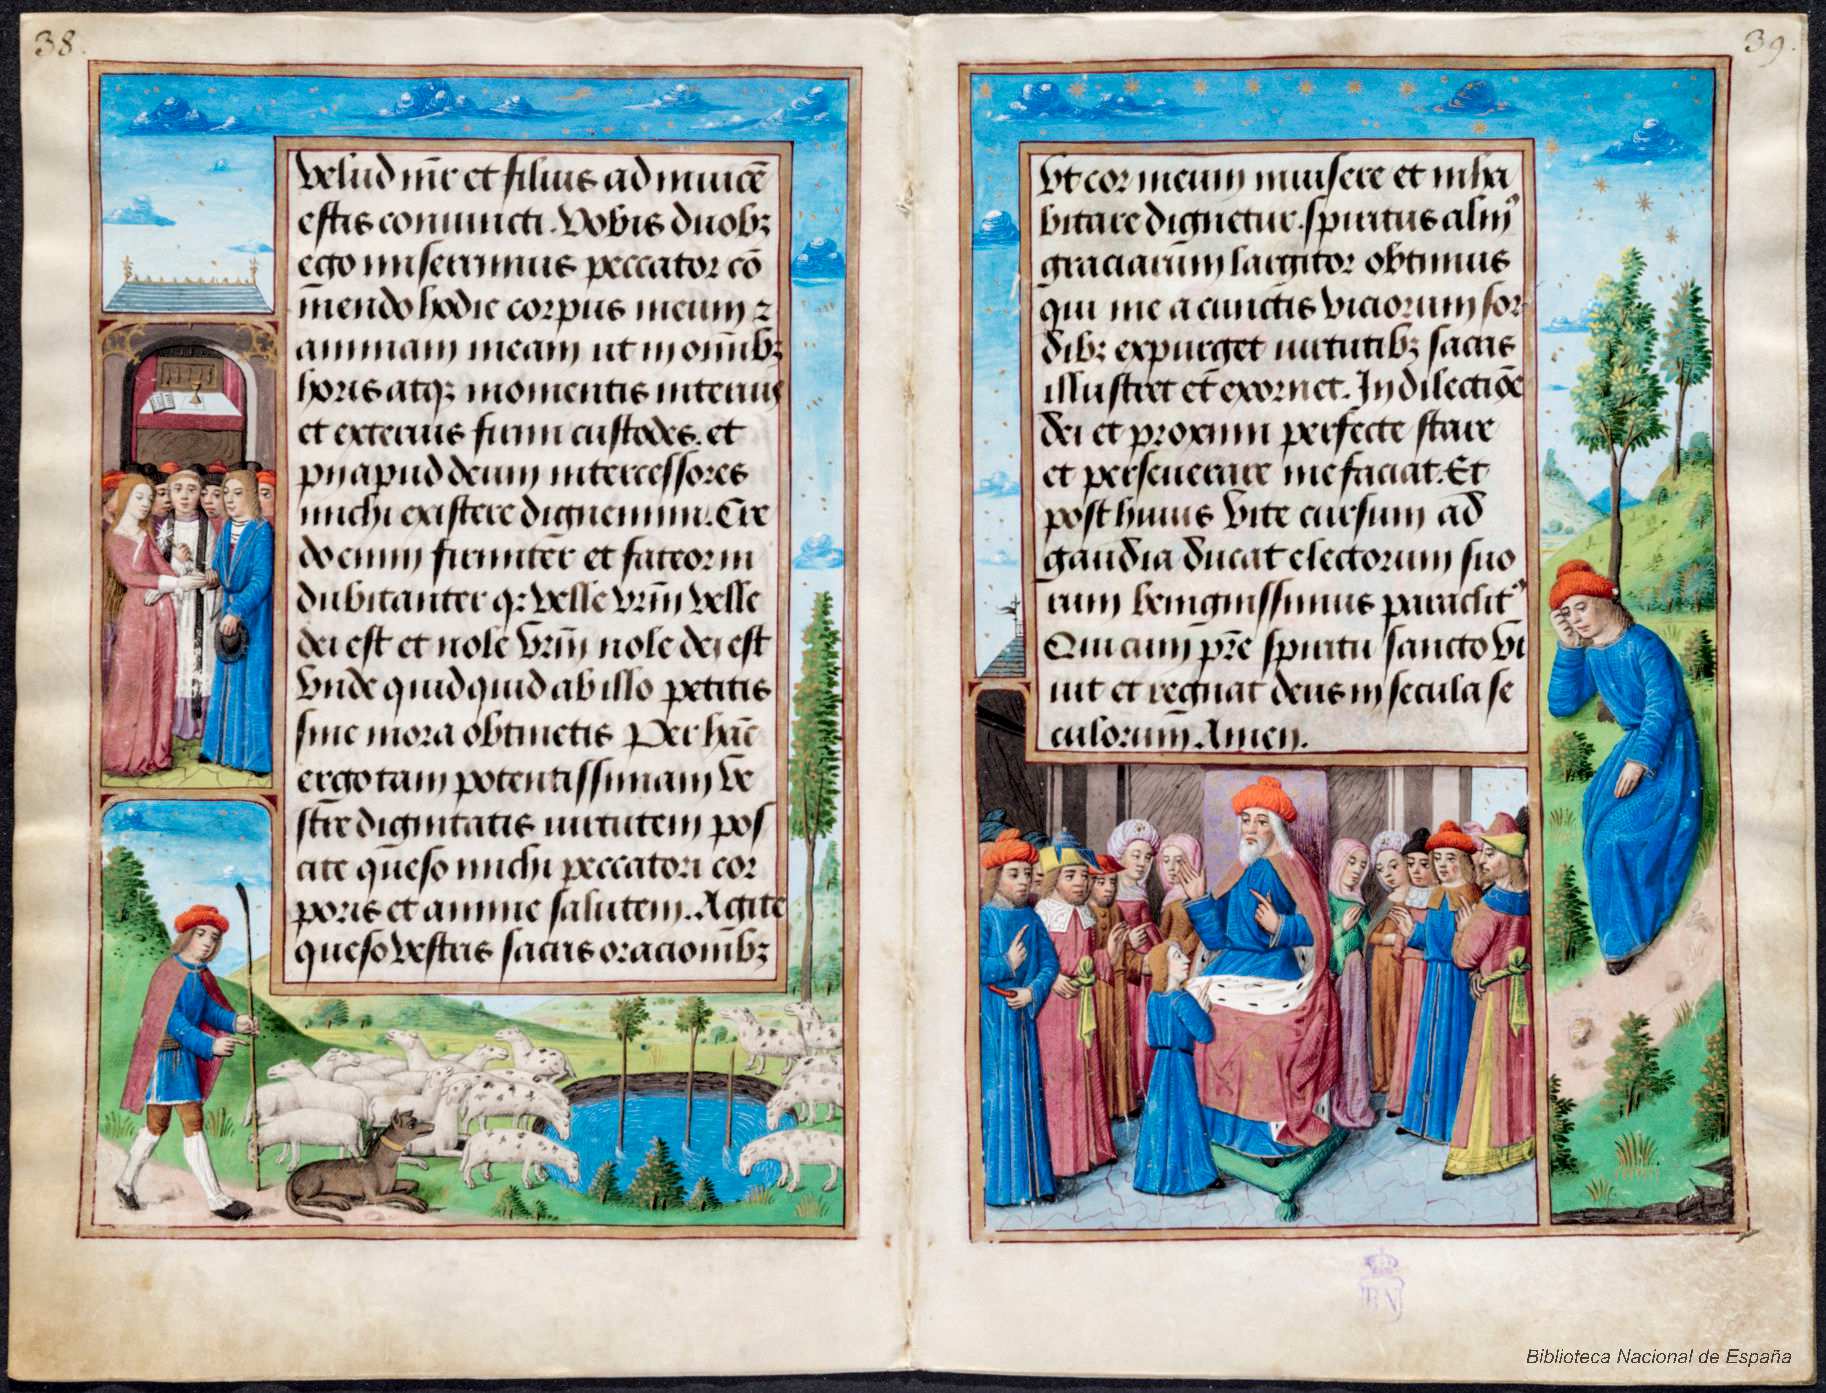 38.
velud mr̃ et filius ad inuicẽ
estis coniuncti. Vobis duobꝫ
ego miserrimus peccator cõ
mendo hodie corpus meum ⁊
animam meam ut in om̃ibꝫ
horis atqꝫ momentis interius
et exterius firmi custodes. et
pij apud deum intercessores
michi existere dignemini. Cre
do enim firmiter et fateor in
dubitanter qꝫ velle vr̃m velle
dei est et nole vr̃m nole dei est
vnde quidquid ab illo petitis
sine mora obtinetis Per hãc
ergo tam potentissimam ve
stre dignitatis uirtutem pos
cite queso michi peccatori cor
poris et anime salutem. Agite
queso vestris sacris oracionibꝫ
39.
vt cor meum inuisere et inha
bitare dignetur. spiritus alm⁹
graciarum largitor obtimus
qui me a cunctis viciorum sor
dibꝫ expurget uirtutibꝫ sacris
illustret et exornet. In dilectiõe
dei et proximi perfecte stare
et perseuerare me faciat. Et
post huius vite cursum ad
gaudia ducat electorum suo
rum benignissimus paraclit⁹
Qui cum pr̃e spiritu sancto vi
uit et regnat deus in secula se
culorum Amen.
BN
Biblioteca Nacional de España